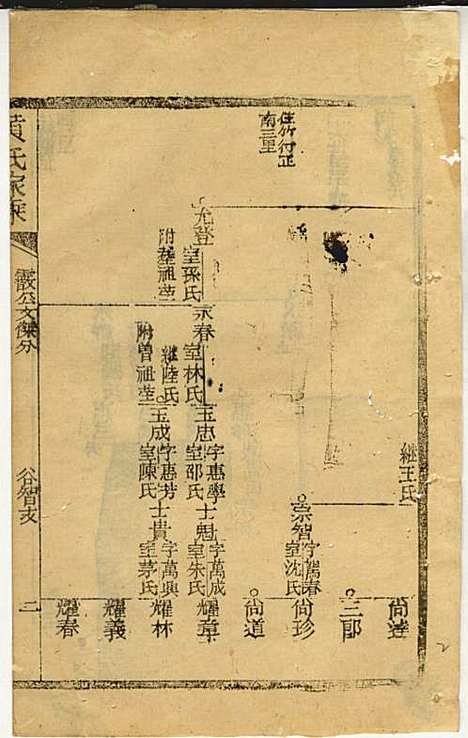 住竹行正
南三里
繼王氏
尚達
三郎
崇智
字萬春
室沈氏
尚珍
尚道
允登
室孫氏
附葬祖塋
永春
室林氏
繼陸氏
附曾祖塋
玉忠
字惠學
室邵氏
玉成
字惠芳
室陳氏
士魁
字萬成
室朱氏
士貴
字萬興
室茅氏
耀章
耀林
耀義
耀春
黃氏家乘
霞公文傑分
谷智支
二